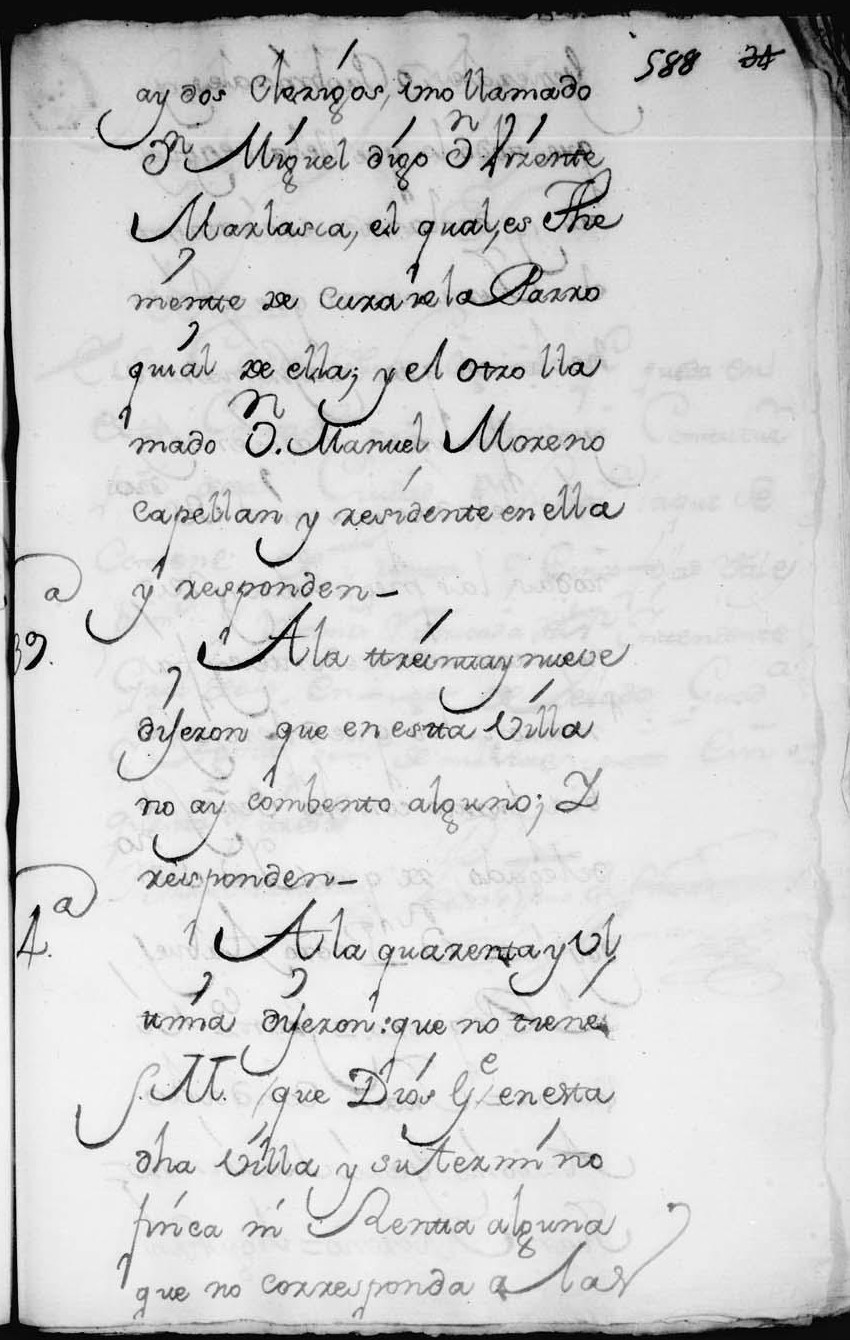 588 34
ay dos Clerigos, uno llamado
Dn Miguel digo Dn. Vizente
Marlasca, el qual, es The
niente de Cura de la Parro
quial de ella; y el otro lla
mado Dn. Manuel Moreno
capellan y residente en ella
y responden_
39.a A la treinta y nueve
dijeron que en esta Villa
no ay combento alguno; Y
responden_
4.a A la quarenta y Ul
tima dijeron: que no tiene
S.M. que Dios Ge en esta
dha Villa y su termino
finca ni Renta alguna
que no corresponda a las